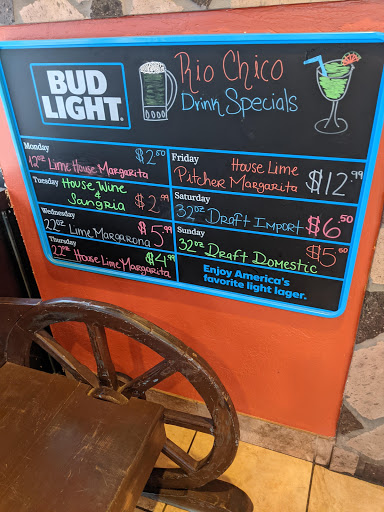 BUD
LIGHT
Rio Chico
Drink Specials
Monday
12oz Lime House Margarita $2.50
Tuesday House Wine
Sangria $2.99
Wednesday
22oz Lime Margarona $5.99
Thursday
22oz House Lime Margarita $4.99
Friday House Lime
Pitcher Margarita $12.99
Saturday
32oz Draft Import $6.50
Sunday
32oz Draft Domestic $5.50
Enjoy America's
favorite light lager.